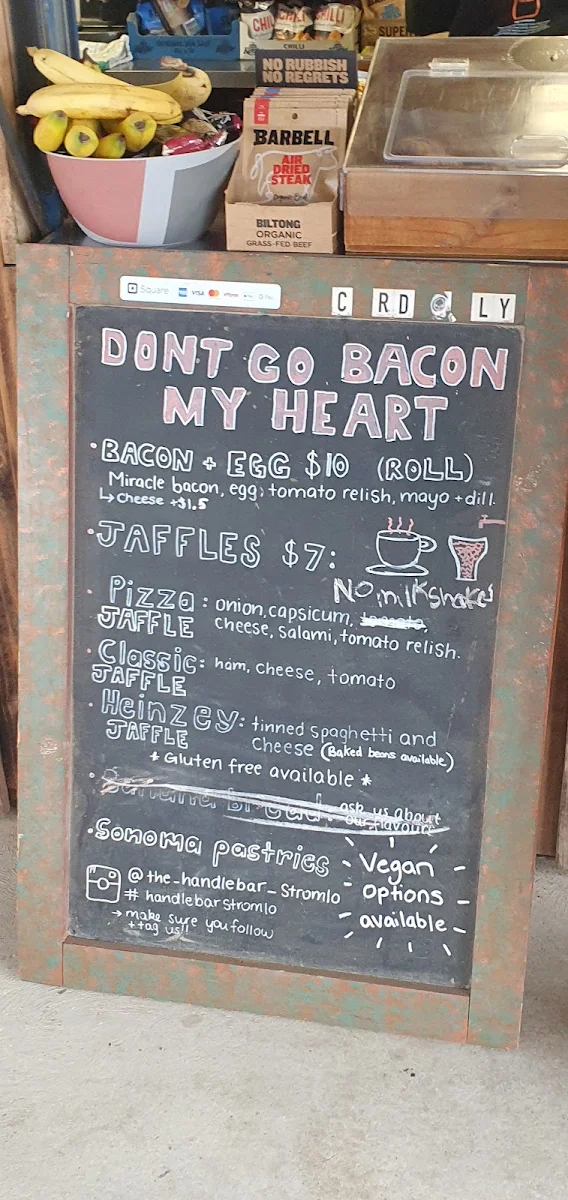 CHILLI
SUPER
NO RUBBISH
NO REGRETS
BARBELL
AIR
DRIED
STEAK
BILTONG
ORGANIC
GRASS-FED BEEF
Square VISA
C RD LY
DONT GO BACON
MY HEART
• BACON + EGG $10 (ROLL)
Miracle bacon, egg, tomato relish, mayo + dill.
↳ cheese +$1.5
• JAFFLES $7:
NO milkshakes
• Pizza JAFFLE : onion, capsicum, tomato,
cheese, salami, tomato relish.
• Classic JAFFLE : ham, cheese, tomato
• Heinzey JAFFLE : tinned spaghetti and
cheese (Baked beans available)
* Gluten free available *
• Banana bread: ask us about
our flavours
• Sonoma pastries
Vegan
options
available
@the_handlebar_stromlo
# handlebarstromlo
→ make sure you follow
+ tag us!!